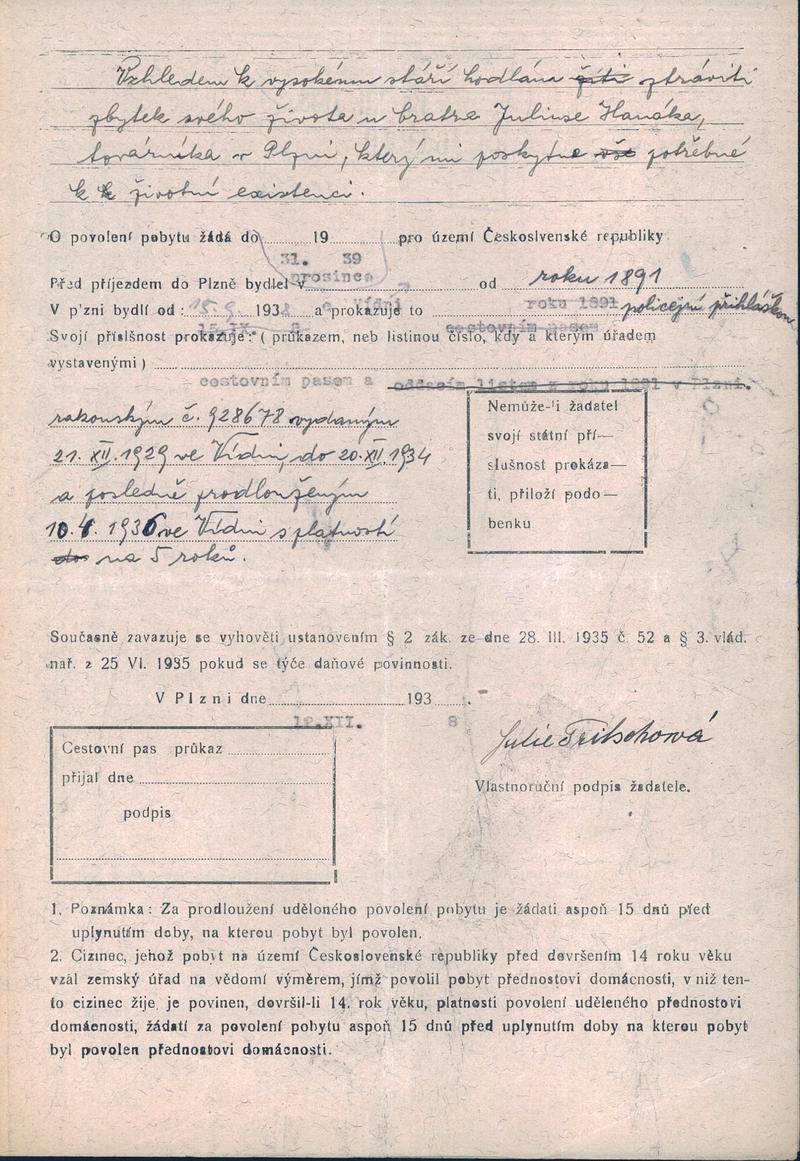 Vzhledem k vysokému stáří hodlám žíti ztráviti
zbytek svého života u bratra Juliuse Hanáka,
továrníka v Plzni, který mi poskytne vše potřebné
k životní existenci.
O povolení pobytu žádá do 19 pro území Československé republiky.
31. 39
prosince
Před příjezdem do Plzně bydlel v od roku 1891
V p'zni bydlí od: 15.9. 1938 a prokazuje to policejní přihláškou
15.IX. 8. Vídni roku 1891
cestovním pasem
Svojí příslšnost prokazuje: (průkazem, neb listinou číslo, kdy a kterým úřadem
vystavenými)
cestovním pasem a oddacím listem z roku 1891 v Plzni.
rakouským č. 928678 vydaným
21. XII. 1929 ve Vídni, do 20. XII. 1934
a posledně prodlouženým
1936 ve Vídni s platností
do na 5 roků.
Nemůže-li žadatel
svojí státní pří—
slušnost prokáza—
ti, přiloží podo—
benku
Současně zavazuje se vyhověti ustanovením § 2 zák. ze dne 28. III. 1935 č. 52 a § 3. vlád.
nař. z 25 VI. 1935 pokud se týče daňové povinnosti.
V Plzni dne 193 .
12.XII. 8
Julie Fritschová
Vlastnoruční podpis žadatele.
Cestovní pas průkaz
přijal dne
podpis
1. Poznámka: Za prodloužení uděloného povolení pobytu je žádati aspoň 15 dnů před
uplynutím doby, na kterou pobyt byl povolen.
2. Cizinec, jehož pobyt na území Československé republiky před dovršením 14 roku věku
vzal zemský úřad na vědomí výměrem, jímž povolil pobyt přednostovi domácnosti, v niž ten-
to cizinec žije, je povinen, dovršil-li 14. rok věku, platnosti povolení uděleného přednostovi
domácnosti, žádatí za povolení pobytu aspoň 15 dnů před uplynutím doby na kterou pobyt
byl povolen přednostovi domácnosti.